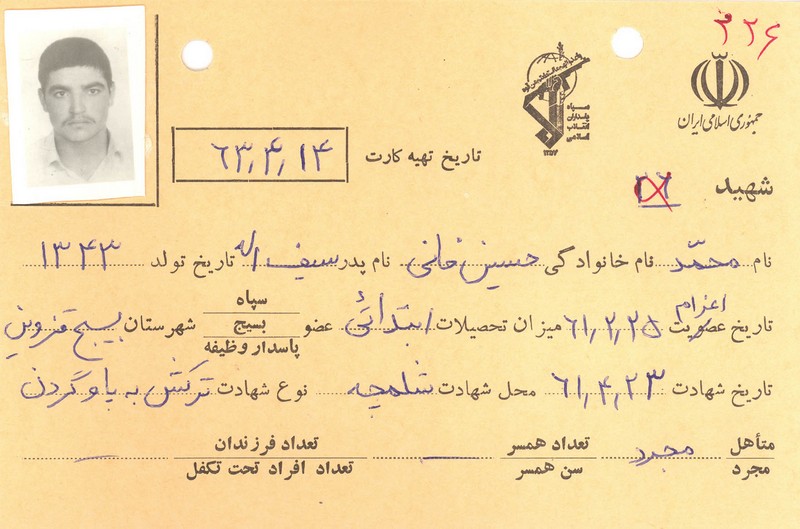 ۳۲۶
جمهوری اسلامی ایران
سپاه
پاسداران
انقلاب
اسلامی
۱۳۵۷
تاریخ تهیه کارت ۶۳,۴,۱۴
شهید ۲۶
نام محمّد نام خانوادگی حسین خانی نام پدر سیف اله تاریخ تولد ۱۳۴۳
تاریخ عضویت اعزام ۶۱,۲,۲۵ میزان تحصیلات ابتدائی عضو سپاه بسیج پاسدار وظیفه شهرستان بسیج قزوین
تاریخ شهادت ۶۱,۴,۲۳ محل شهادت شلمچه نوع شهادت ترکش به پا و گردن
متأهل مجرد مجرد تعداد همسر سن همسر تعداد فرزندان تعداد افراد تحت تکفل